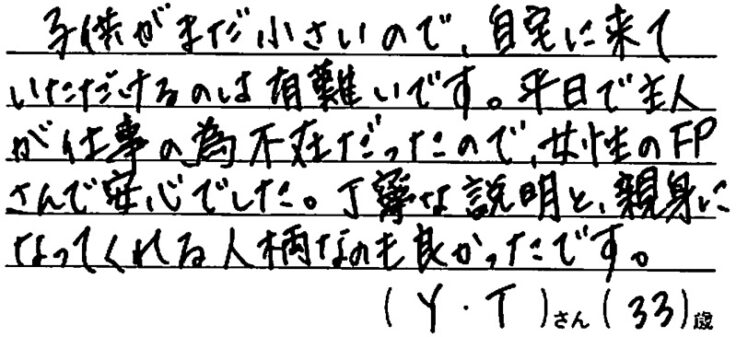 子供がまだ小さいので、自宅に来て
いただけるのは有難いです。平日で主人
が仕事の為不在だったので、女性のFP
さんで安心でした。丁寧な説明と、親身に
なってくれる人柄なのも良かったです。
(Y・T)さん(33)歳